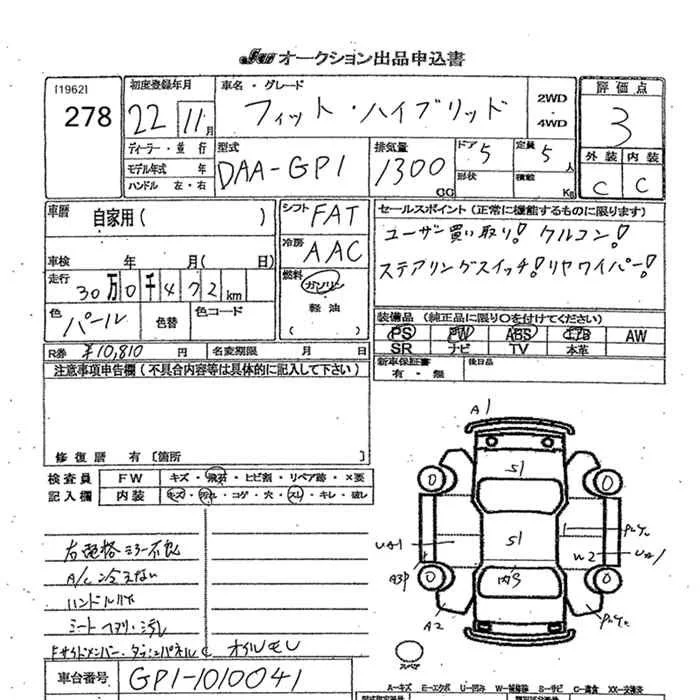 JU オークション出品申込書
[1962]
278
初度登録年月
22 11月
ディーラー・並行
モデル年式 年
ハンドル 左・右
車名・グレード
フィット・ハイブリッド
2WD
・
4WD
型式
DAA-GP1
排気量
1300
CC
ドア 5
形状
定員 5人
積載 Kg
評価点
3
外装 内装
C C
車歴
自家用( )
車検 年 月( 日)
走行
30万0千472km
色
パール
色替
色コード
R券 ¥10,810 円
名変期限 月 日
シフト FAT
冷房 AAC
燃料
ガソリン
軽油
( )
セールスポイント(正常に機能するものに限ります)
ユーザー買い取り! クルコン!
ステアリングスイッチ!リヤワイパー!
装備品(純正品に限り○を付けてください)
PS PW ABS エアB AW
SR ナビ TV 本革
新車保証書
有・無
後日品
注意事項申告欄(不具合内容等は具体的に記入して下さい)
修復歴 有〔箇所 〕
検査員
記入欄
FW キズ・飛石・ヒビ割・リペア跡・×要
内装 キズ・汚れ・コゲ・穴・スレ・キレ・破レ
右電格ミラー不良
A/C冷えない
ハンドルハゲ
シートヘタリ・汚れ
ドサイドメンバー・ダッシュパネルC オイルモレ
A1
S1
S1
内3
UA1
A3P
A2
W2
UA1
スペア
車台番号
GP1-1010041
A-キズ E-エクボ U-凹み W-補修跡 S-サビ C-腐食 XX-交換済